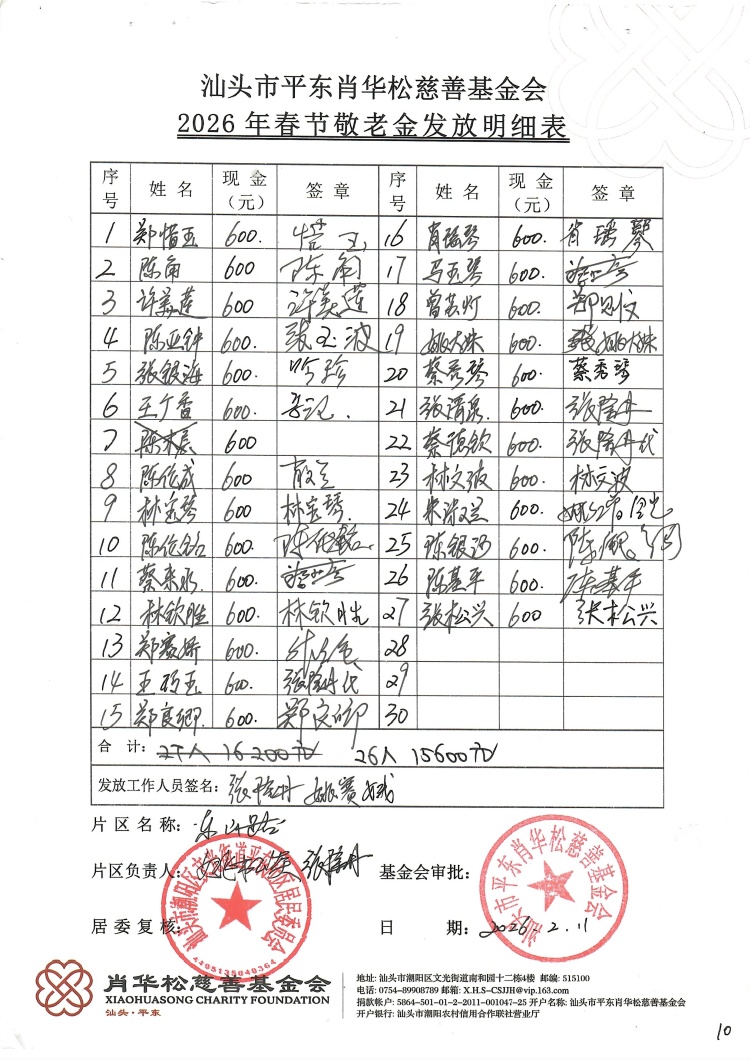 汕头市平东肖华松慈善基金会
2026年春节敬老金发放明细表
序号 姓名 现金（元） 签章 序号 姓名 现金（元） 签章
1 郑惜玉 600. 惜玉 16 肖瑶琴 600. 肖瑶琴
2 陈角 600 陈角 17 马玉琴 600.
3 许美莲 600 许美莲 18 曾苏灯 600.
4 陈亚钟 600. 张玉波 19 姚大妹 600. 姚大妹
5 张银海 600. 吟珍 20 蔡秀琴 600. 蔡秀琴
6 王广香 600. 21 600. 张隆丹
7 600 22 蔡德钦 600. 张隆丹代
8 陈伦成 600 23 林文波 600. 林文波
9 林宝琴 600 林宝琴 24 朱淑兰 600.
10 陈伦铭 600. 陈伦铭 25 陈银沙 600.
11 蔡来永 600. 26 陈基平 600. 陈基平
12 林钦胜 600. 林钦胜 27 张松兴 600 张松兴
13 郑赛娇 600. 28
14 王巧玉 600. 张隆丹代 29
15 郑良卿 600. 郑良卿 30
合计： 27人 16200元 26人 15600元
发放工作人员签名：张隆丹 姚赛城
片区名称：
片区负责人： 张隆丹 基金会审批：
居委复核： 日期：2026.2.11
汕头市平东肖华松慈善基金会
4405135040364
肖华松慈善基金会
XIAOHUASONG CHARITY FOUNDATION
汕头·平东
地址: 汕头市潮阳区文光街道南和园十二栋4楼 邮编: 515100
电话: 0754-89908789 邮箱: X.H.S-CSJJH@vip.163.com
捐款帐户: 5864-501-01-2-2011-001047-25 开户名称: 汕头市平东肖华松慈善基金会
开户银行: 汕头市潮阳农村信用合作联社营业厅
10